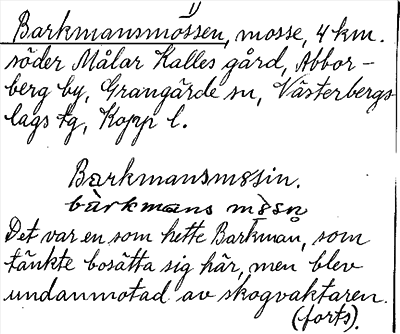 1)
Barkmansmossen, mosse, 4 km.
söder Målar Kalles gård, Abbor-
berg by, Grangärde sn, Västerbergs
lags tg, Kopp l.
Barkmansmosin.
Det var en som hette Barkman, som
tänkte bosätta sig här, men blev
undanmotad av skogvaktaren.
(forts).